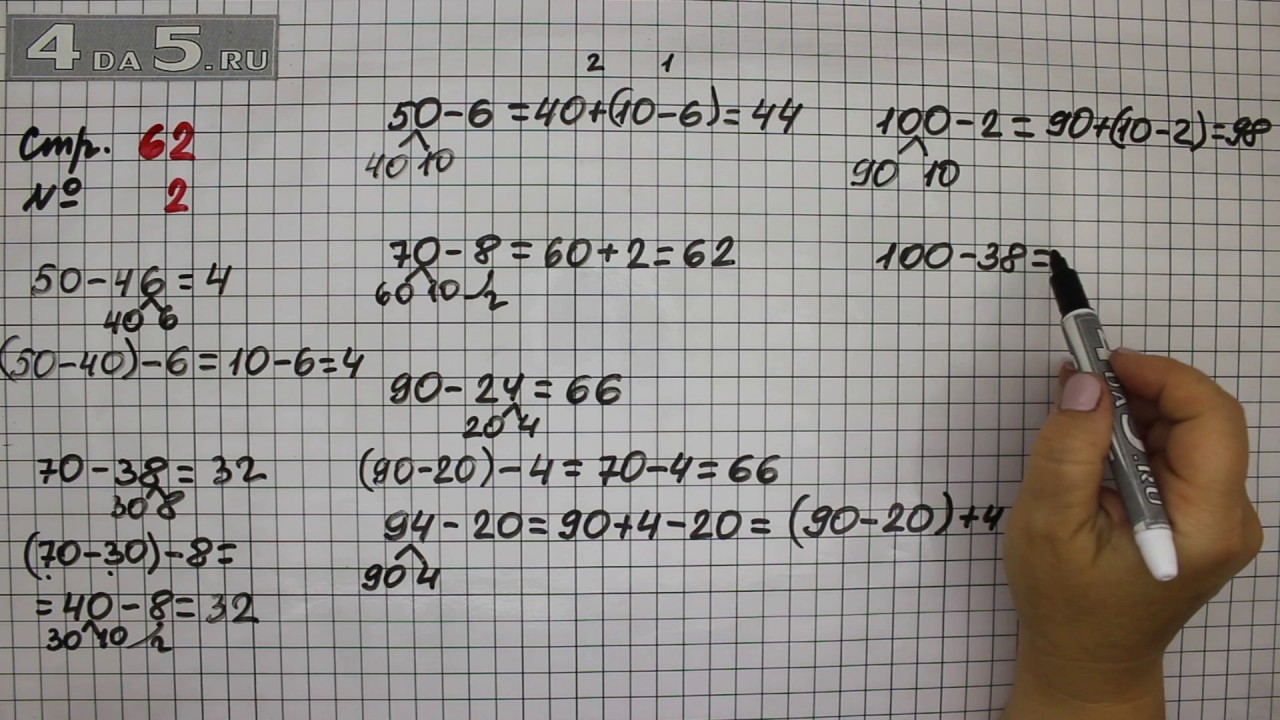 4 DA 5.RU
Стр. 62
№ 2
50-46=4
40 6
(50-40)-6=10-6=4
70-38=32
30 8
(70-30)-8=
=40-8=32
30 10 2
2 1
50-6=40+(10-6)=44
40 10
70-8=60+2=62
60 10 2
90-24=66
20 4
(90-20)-4=70-4=66
94-20=90+4-20=(90-20)+4
90 4
100-2=90+(10-2)=98
90 10
100-38=
DA 5.RU